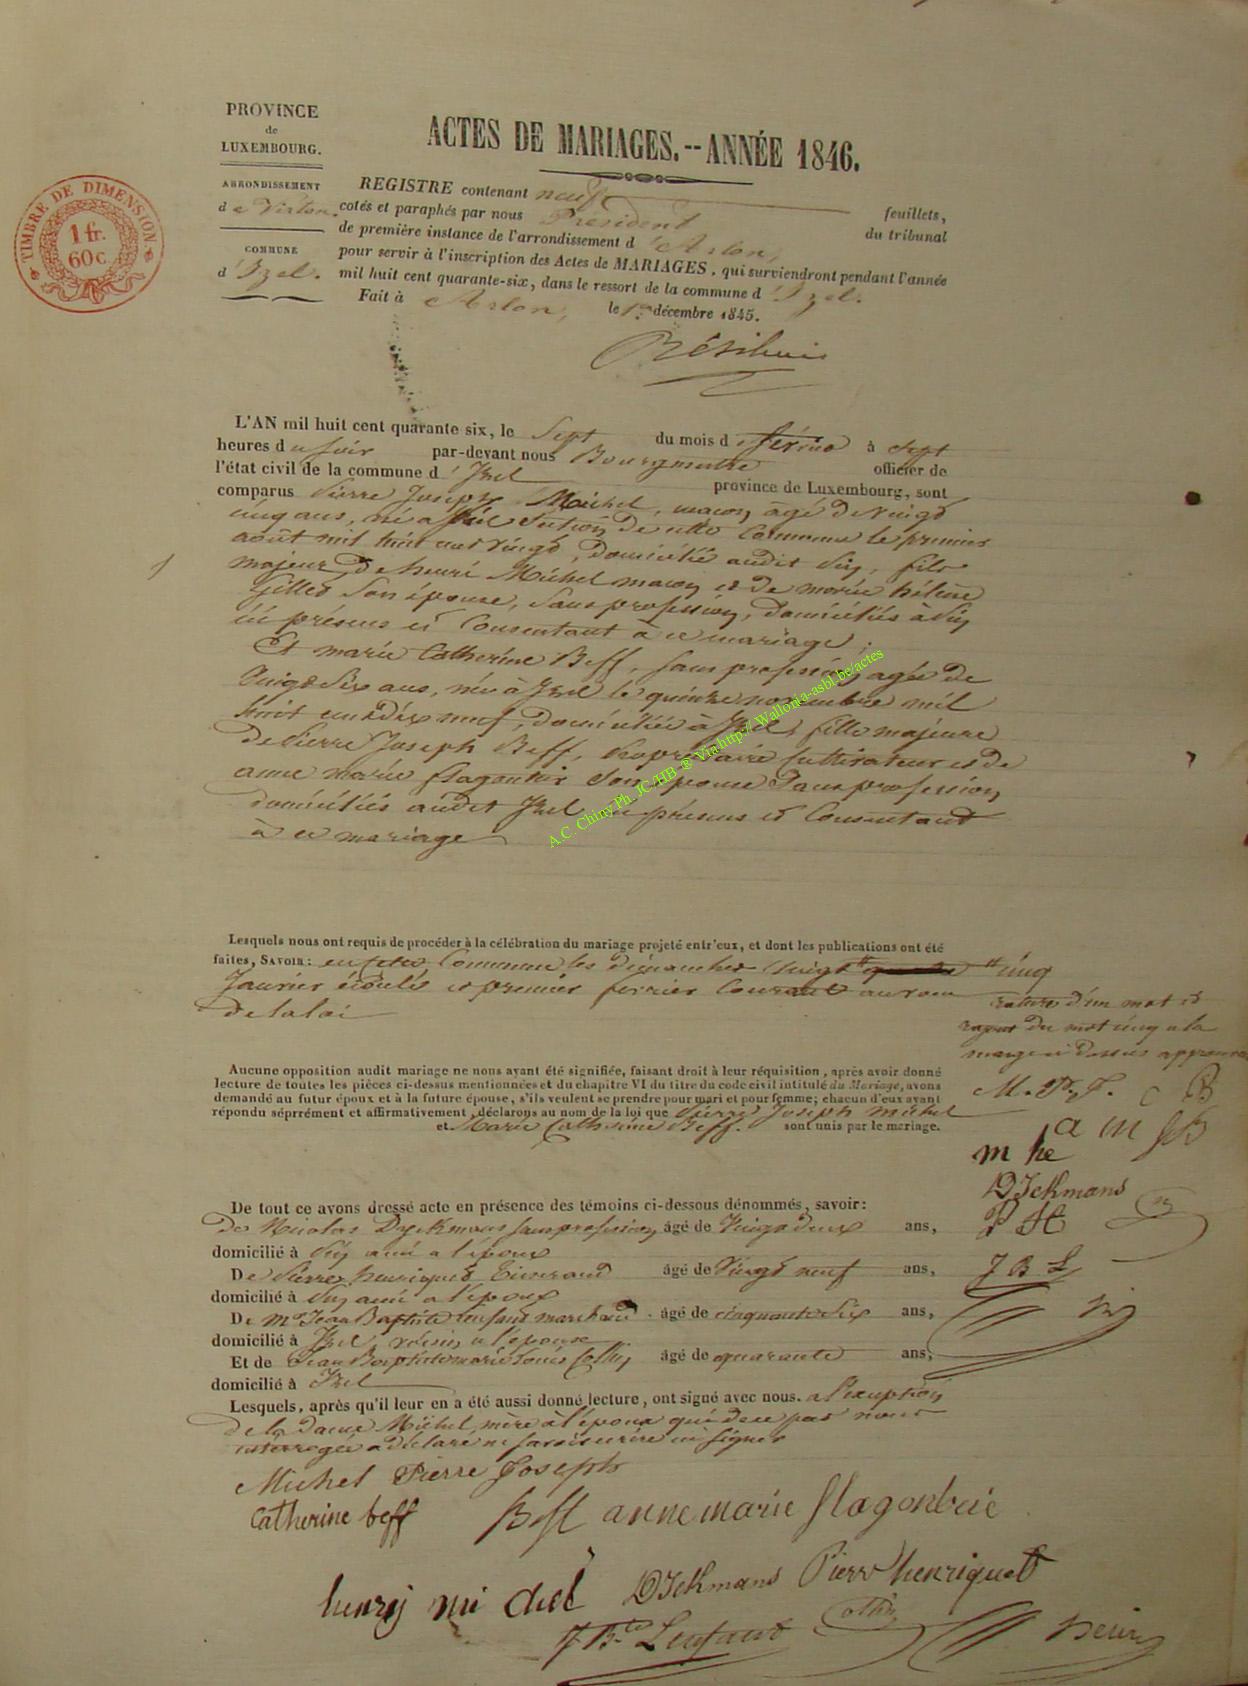 PROVINCE
de
LUXEMBOURG.
ARRONDISSEMENT
de Virton.
COMMUNE
d'Izel.
TIMBRE DE DIMENSION
1 fr.
60 c.
ACTES DE MARIAGES.--ANNÉE 1846.
REGISTRE contenant neuf feuillets,
cotés et paraphés par nous Président du tribunal
de première instance de l'arrondissement d'Arlon,
pour servir à l'inscription des Actes de MARIAGES, qui surviendront pendant l'année
mil huit cent quarante-six, dans le ressort de la commune d'Izel.
Fait à Arlon, le décembre 1845.
L'AN mil huit cent quarante six, le Sept du mois de février à Sept
heures du soir par-devant nous Bourgmestre officier de
l'état civil de la commune d'Izel province de Luxembourg, sont
comparus Pierre Joseph Michel, maçon, âgé de vingt
cinq ans, né à section de cette commune le premier
août mil huit cent vingt, domicilié audit fils
majeur de henri Michel maçon et de marie hélène
Gilles son épouse, sans profession, domiciliés à
ici présens et Consentant à ce mariage;
Et marie Catherine Beff, sans profession, agée de
vingt Six ans, née à Izel le quinze novembre mil
huit cent dix neuf, domiciliée à Izel, fille majeure
de Pierre Joseph Beff, propriétaire cultivateur et de
anne marie flagontier son épouse sans profession
domiciliés audit Izel ici présens et Consentant
à ce mariage
A.C. Chiny Ph. JC/HB ® Via http://Wallonia-asbl.be/actes
Lesquels nous ont requis de procéder à la célébration du mariage projeté entr'eux, et dont les publications ont été
faites, SAVOIR: en cette Commune les dimanches vingt " cinq
Janvier écoulé et premier février Courant au vœu
de la loi
rature d'un mot et
rajout du mot cinq à la
marge ci dessus approuvés
M. P. J. C B
a m f B
m he
DIckmans
P H
J B L
Aucune opposition audit mariage ne nous ayant été signifiée, faisant droit à leur réquisition, après avoir donné
lecture de toutes les pièces ci-dessus mentionnées et du chapitre VI du titre du code civil intitulé du Mariage, avons
demandé au futur époux et à la future épouse, s'ils veulent se prendre pour mari et pour femme; chacun d'eux ayant
répondu séprrément et affirmativement, déclarons au nom de la loi que Pierre Joseph Michel
et Marie Catherine Beff. sont unis par le mariage.
De tout ce avons dressé acte en présence des témoins ci-dessous dénommés, savoir:
De Nicolas Dyckmans sans profession, âgé de Vingt deux ans,
domicilié à ami à l'époux
De Pierre henriquet âgé de Vingt neuf ans,
domicilié à ami à l'époux
De Mr Jean Baptiste Lenfant marchand âgé de cinquante Six ans,
domicilié à Izel voisin à l'épouse
Et de Jean Baptiste marie Louis Collin âgé de quarante ans,
domicilié à Izel
Lesquels, après qu'il leur en a été aussi donné lecture, ont signé avec nous. à l'exception
de la Dame Michel, mère à l'époux qui de ce par nous
interrogée a déclaré ne savoir écrire ni signer
Michel Pierre Joseph
Catherine beff Beff anne marie flagontier
henrij mi chel DIckmans Pierr henriquet
J Bte Lenfant